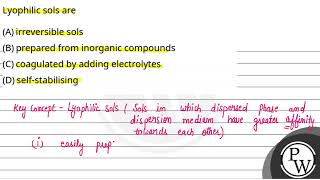 Lyophilic sols are
(A) irreversible sols
(B) prepared from inorganic compounds
(C) coagulated by adding electrolytes
(D) self-stabilising
Key Concept - Lyophilic Sols ( Sols in which dispersed Phase and
dispersion medium have greater affinity
towards each other)
(i) easily prep
PW